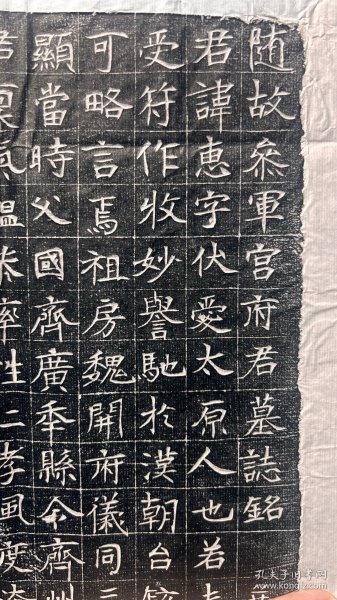 随故叅軍宫府君墓誌銘
君諱惠字伏愛太原人也若
受符作牧妙譽馳於漢朝台
可略言焉祖房魏開府儀同三
顯當時父國齊廣秊縣令齊州
君稟氣温率性孝風度
孔夫子旧书网